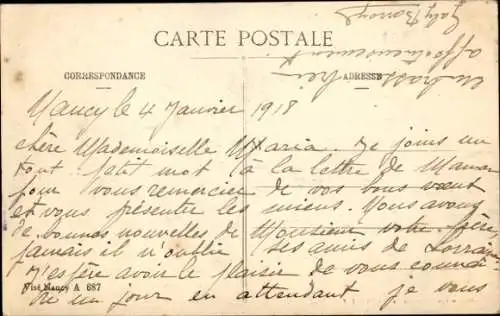 CARTE POSTALE
CORRESPONDANCE
ADRESSE
Nancy le 4 Janvier 1918
chère Mademoiselle Maria. Je joins un
tout petit mot à la lettre de Maman
pour vous remercier de vos bons vœux
et vous présenter les miens. Nous avons
de bonnes nouvelles de Monsieur votre frère,
jamais il n'oublie ses amis de Lorraine
J'espère avoir le plaisir de vous connaî
tre un jour en attendant je vous
embrasse bien
affectueusement.
Gaby
Visé Nancy A 687